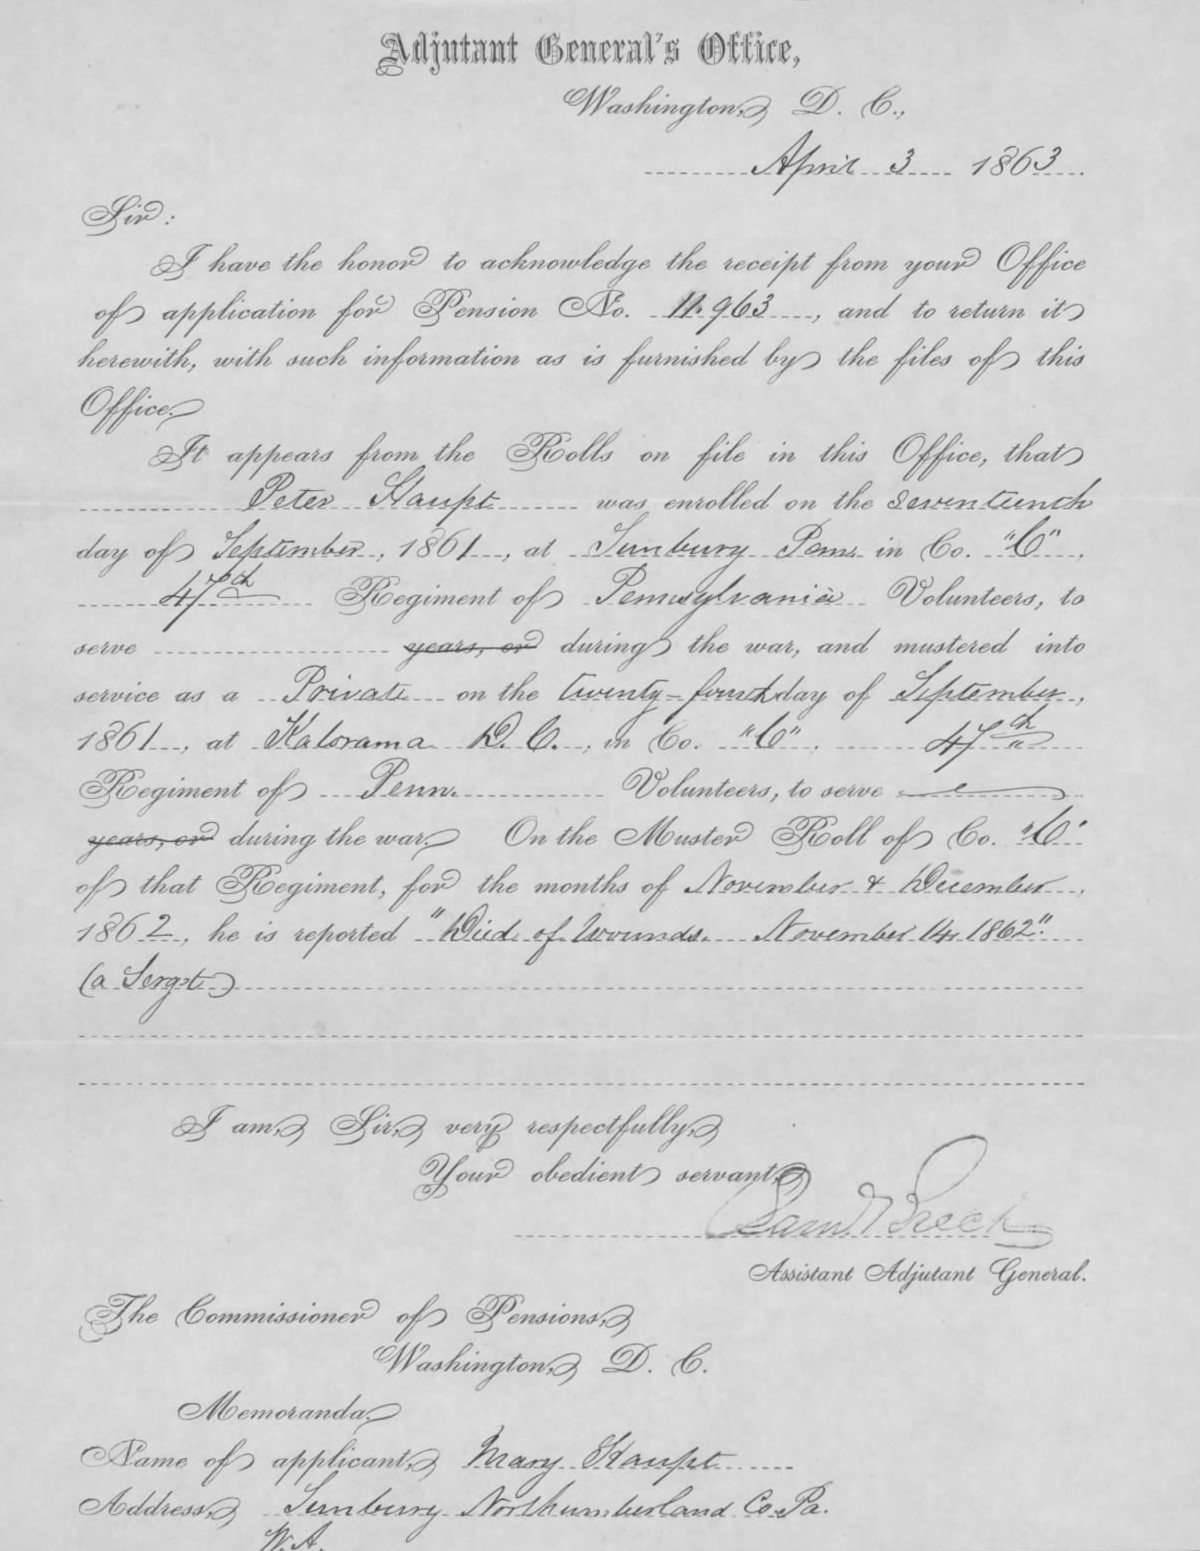 Adjutant General's Office,
Washington, D. C.,
April 3 1863.
Sir:
I have the honor to acknowledge the receipt from your Office
of application for Pension No. 11.963, and to return it
herewith, with such information as is furnished by the files of this
Office.
It appears from the Rolls on file in this Office, that
Peter Haupt was enrolled on the seventeenth
day of September, 1861, at Sunbury Penn. in Co. "C",
47th Regiment of Pennsylvania Volunteers, to
serve years, or during the war, and mustered into
service as a Private on the twenty-fourth day of September,
1861, at Kalorama D. C., in Co. "C", 47th
Regiment of Penn. Volunteers, to serve
years, or during the war. On the Muster Roll of Co. "C"
of that Regiment, for the months of November & December,
1862, he is reported "Died of Wounds. November 14, 1862."
(a Sergt.)
I am, Sir, very respectfully,
Your obedient servant,
Sam'l Breck
Assistant Adjutant General.
The Commissioner of Pensions,
Washington, D. C.
Memoranda.
Name of applicant, Mary Haupt
Address, Sunbury Northumberland Co. Pa.
W.A.